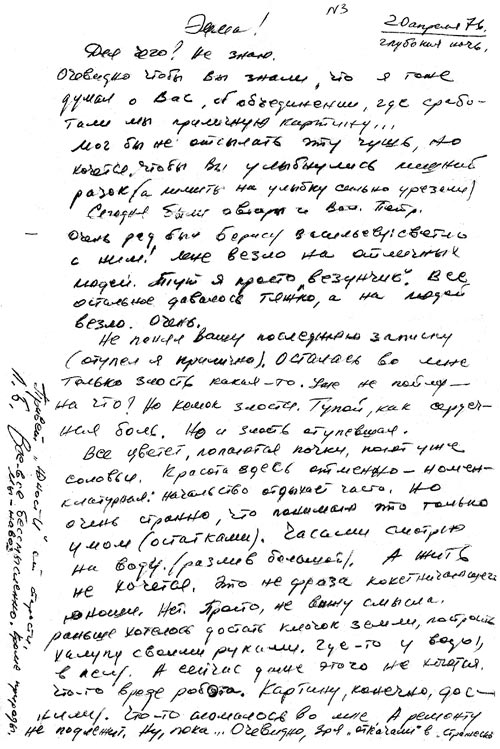 N3
Эмма!
20 апреля 76.
глубокая ночь.
Для чего? Не знаю.
Очевидно чтобы Вы знали, что я тоже
думал о Вас, об объединении, где срабо-
тали мы приличную картину...
Мог бы не отсылать эту чушь, но
хочется, чтобы Вы улыбнулись лишний
разок (а лимиты на улыбку сильно урезали)
Сегодня были авторы и Вал. Петр.
Очень рад был Борису Васильеву: светло
с ним! Мне везло на отличных
людей. Тут я просто „везунчик". Все
остальное давалось тяжко, а на людей
везло. Очень.
Не понял Вашу последнюю записку
(отупел я прилично). Осталась во мне
только злость какая-то. Уже не пойму —
на что? Но комок злости. Тупой, как сердеч-
ная боль. Но и злость отупевшая.
Все цветет, лопаются почки, поют уже
соловьи. Красота здесь отменно-номен-
клатурная: начальство отдыхает часто. Но
очень странно, что понимаю это только
умом (остатками). Часами смотрю
на воду. (разлив большой). А жить
не хочется. Это не фраза кокетничающего
юноши. Нет. Просто, не вижу смысла.
Раньше хотелось достать клочок земли, построить
халупу своими руками. Где-то у воды,
в лесу. А сейчас даже этого не хочется.
Что-то вроде робота. Картину, конечно, дос-
ниму. Что-то сломалось во мне. А ремонту
не подлежит. Ну, пока... Очевидно, зря „откачали" в
Привет „Юности" и
Л. Б. Все-все бессмысленно, кроме природы,
мы - навоз